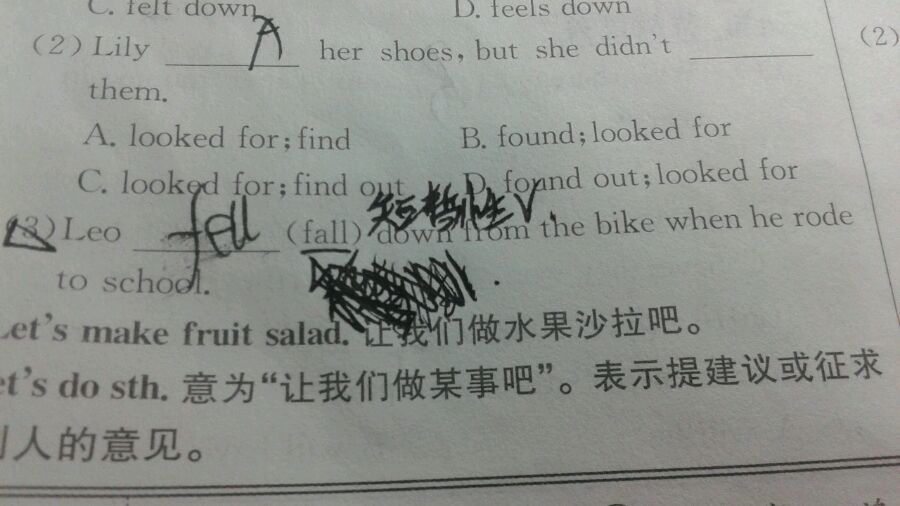 C. felt down D. feels down
(2) Lily A her shoes, but she didn't
them.
A. looked for; find B. found; looked for
C. looked for; find out D. found out; looked for
(3) Leo fell (fall) down from the bike when he rode
短暂性V.
to school.
Let's make fruit salad. 让我们做水果沙拉吧。
et's do sth. 意为“让我们做某事吧”。表示提建议或征求
别人的意见。
(2)